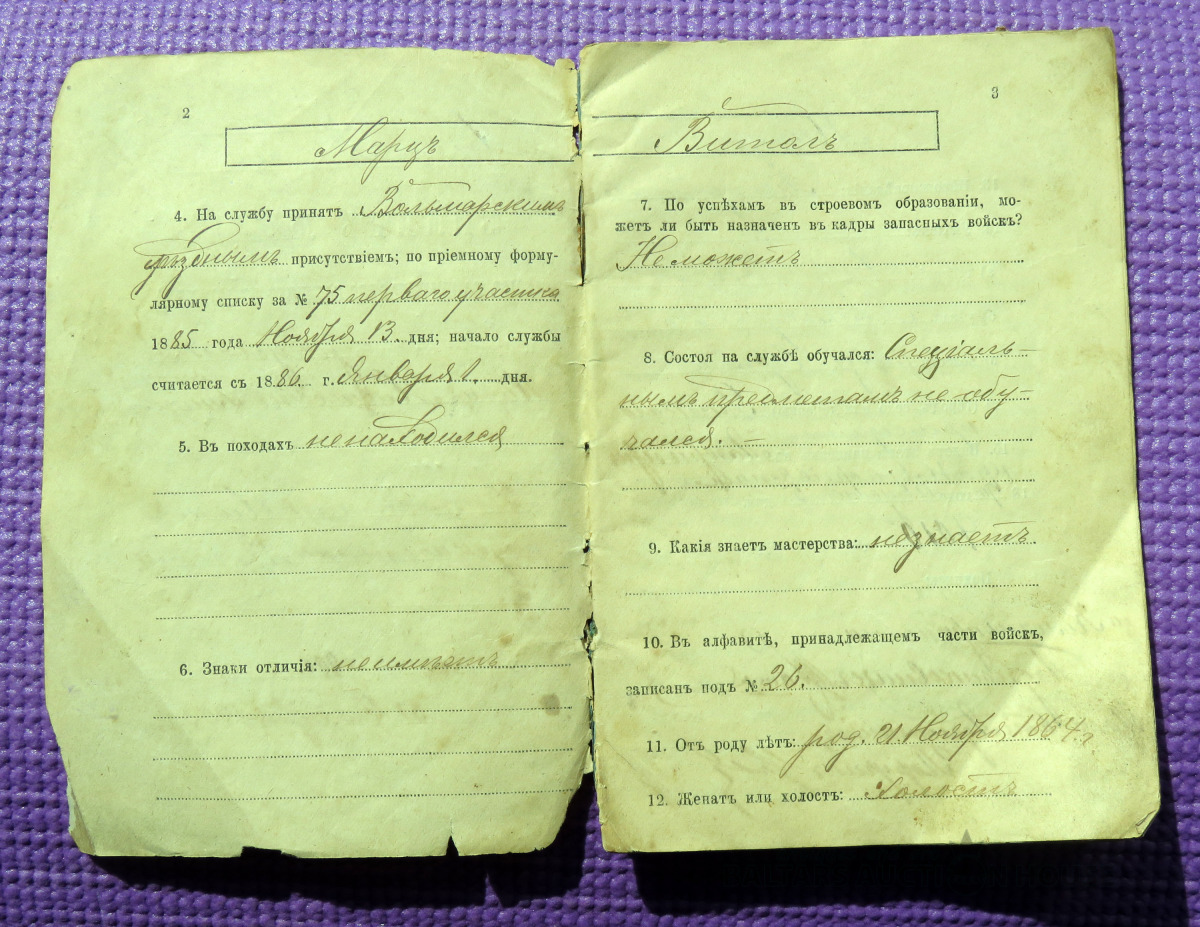 2
Марцъ
4. На службу принятъ Вольмарскимъ
уѣзднымъ присутствіемъ; по пріемному форму-
лярному списку за № 75 перваго участка
1885 года Ноября 13. дня; начало службы
считается съ 1886 г. Января 1. дня.
5. Въ походахъ ненаходился
6. Знаки отличія: неимѣетъ
3
Витолъ
7. По успѣхамъ въ строевомъ образованіи, мо-
жетъ ли быть назначенъ въ кадры запасныхъ войскъ?
Не можетъ
8. Состоя на службѣ обучался: Спеціаль-
нымъ предметамъ не обу-
чался. —
9. Какія знаетъ мастерства: незнаетъ
10. Въ алфавитѣ, принадлежащемъ части войскъ,
записанъ подъ № 26.
11. Отъ роду лѣтъ: род. 21 Ноября 1864 г
12. Женатъ или холостъ: Холостъ